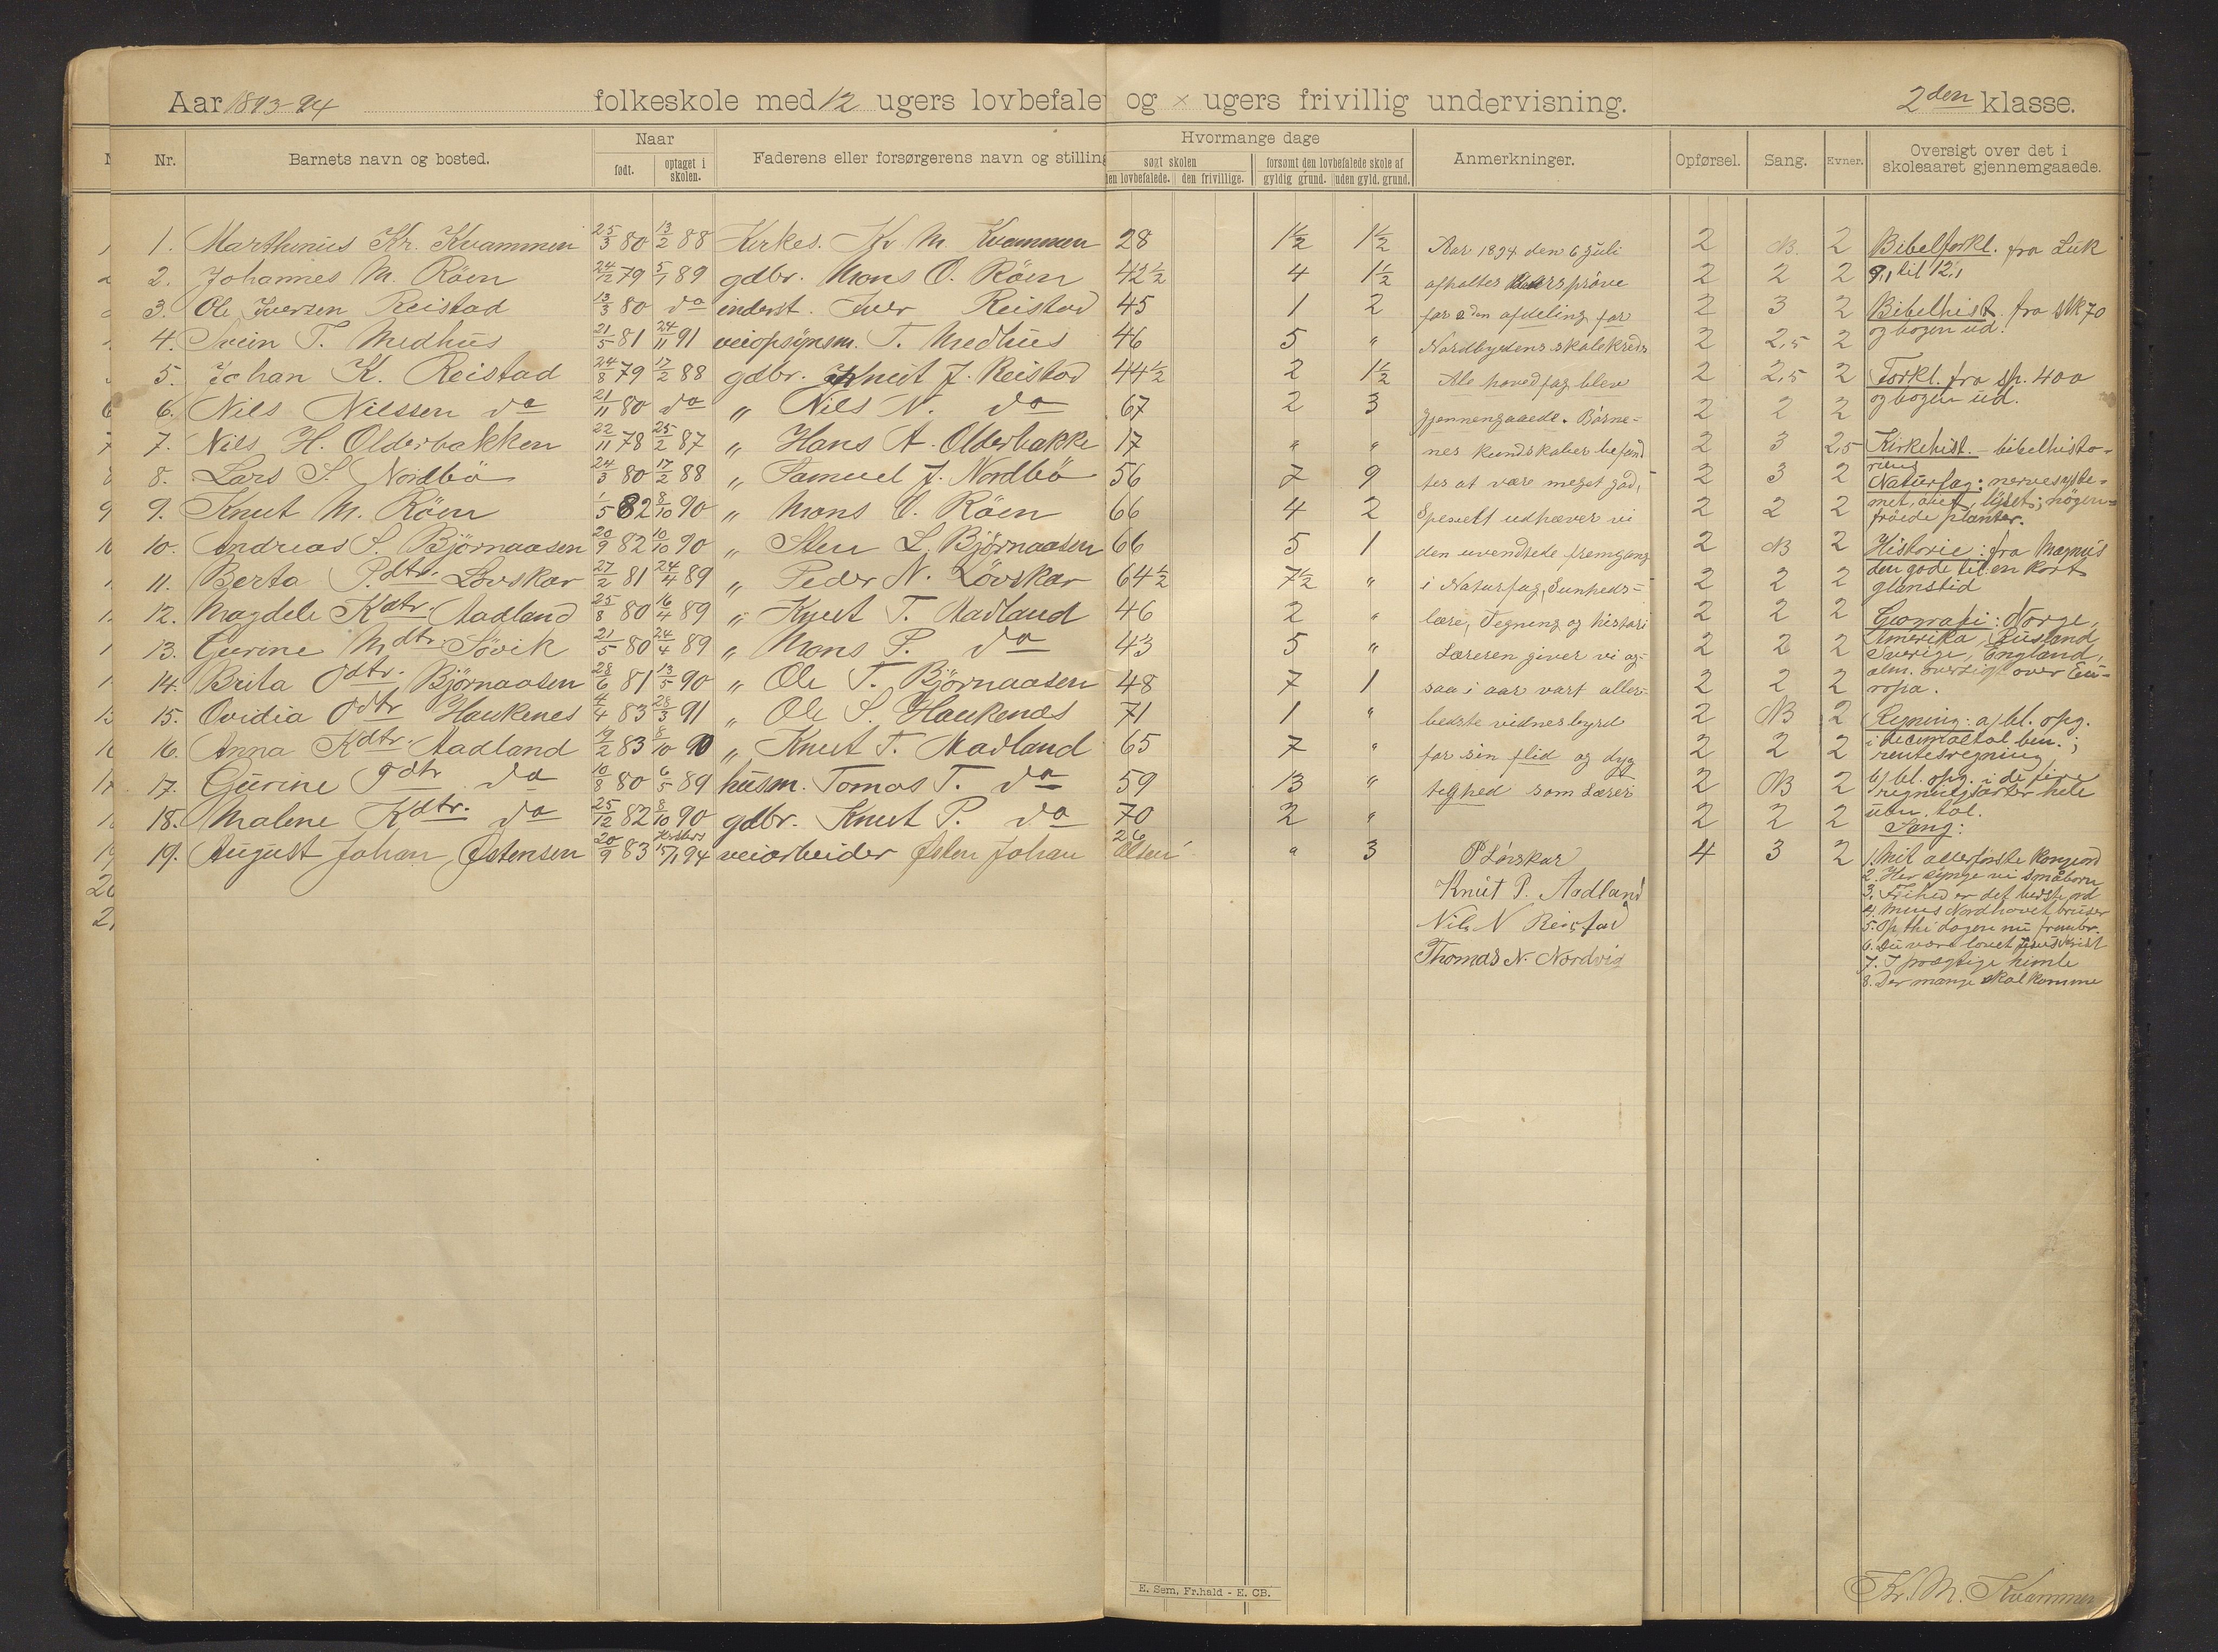 Aar 1893-94 folkeskole med 12 ugers lovbefale og × ugers frivillig undervisning. 2den klasse.
Nr. Barnets navn og bosted. Naar født. optaget i skolen. Faderens eller forsørgerens navn og stilling Hvormange dage søgt skolen den lovbefalede. den frivillige. forsømt den lovbefalede skole af gyldig grund. uden gyld. grund. Anmerkninger. Opførsel. Sang. Evner. Oversigt over det i skoleaaret gjennemgaaede.
1. Marthinius Kr. Kvammen 25/3 80 13/2 88 Kirkes. Kr. M. Kvammen 28 1½ 1½ 2 NB. 2
2. Johannes M. Röen 24/12 79 5/1 89 gdbr. Mons O. Röen 42½ 4 1½ 2 2 2
3. Ole Iversen Reistad 13/3 80 do inderst. Iver Reistad 45 1 2 2 3 2
4. Svein T. Medhus 21/5 81 24/11 91 veiopsynsm. T. Medhus 46 5 " 2 2,5 2
5. Johan K. Reistad 24/8 79 17/2 88 gdbr. Knut J. Reistad 44½ 2 1½ 2 2,5 2
6. Nils Nilssen do 21/11 80 do " Nils N. do 67 2 3 2 2 2
7. Nils H. Olderbakken 22/11 78 25/2 87 " Hans A. Olderbakke 17 " " 2 3 2,5
8. Lars S. Nordbö 24/3 80 17/2 88 " Samuel J. Nordbö 56 7 9 2 3 2
9. Knut M. Röen 1/5 82 8/10 90 " Mons O. Röen 66 4 2 2 2 2
10. Andreas S. Björnaasen 20/9 82 10/10 90 " Sten L. Björnaasen 66 5 1 2 NB 2
11. Berta P.dtr. Lövskar 27/2 81 24/4 89 " Peder N. Lövskar 64½ 7½ " 2 2 2
12. Magdele Kdtr. Aadland 25/8 80 16/4 89 " Knut T. Aadland 46 2 " 2 2 2
13. Gurine Mdtr. Sövik 21/5 80 24/4 89 " Mons P. do 43 5 " 2 2 2
14. Brita Odtr. Björnaasen 28/6 81 13/5 90 " Ole T. Björnaasen 48 7 1 2 2 2
15. Ovidia Odtr Haukenes 4/4 83 28/3 91 " Ole S. Haukenæs 71 1 " 2 NB 2
16. Anna Kdtr. Aadland 19/2 83 8/10 90 " Knut T. Aadland 65 7 " 2 2 2
17. Gurine Tdtr do 10/8 80 6/5 89 husm. Tomas T. do 59 13 " 2 NB 2
18. Malene Kdtr. do 25/12 82 8/10 90 gdbr. Knut P. do 70 2 " 2 2 2
19. August Johan Östensen 20/9 83 15/1 94 veiarbeider Östen Johan Olsen 26 " 3 4 3 2
Aar 1894 den 6 juli
afholtes Aarsprøve
for 2den afdeling for
Nordbygdens skolekreds
Ale hovedfag blev
gjennemgaaede. Børne-
nes kundskaber befand
tes at være meget god,
Spesielt udhæver vi
den uvendtede fremgang
i Naturfag, Sunheds-
lære, Tegning og histori
Læreren giver vi og-
saa i aar vort aller-
bedste vidnesbyrd
for sin flid og dyg
tighed som Lærer
P Lövskar
Knut P. Aadland
Nils N Reistad
Thomas N. Nordvig
Bibelforkl. fra Luk
9,1 til 12,1
Bibelhist. fra Stk 70
og bogen ud.
Forkl. fra sp. 400
og bogen ud.
Kirkehist. - bibelhisto-
riens
Naturfag: nervesyste-
met, luft, lyset; nögen-
fröede planter.
Historie: fra Magnus
den gode til en kort
glanstid
Geografi: Norge,
Amerika, Rusland,
Sverige, England,
alm. oversigt over Eu-
ropa.
Regning: a) bl. opg.
i decimaltal ben.;
rentesregning
b) bl. opg. i de fire
regningsarter hele
uben. tal.
Sang:
1. Mit allerförste Kongeord
2. Her synge vi småbørn
3. Frihed er det bedste ord
4. Mens Nordhavet bruser
5. Op thi dagen nu frembr.
6. Du være lovet Jesus Krist
7. I prægtige himle
8. Der mange skal komme
E. Sem, Fr.hald - E. CB.
Kr. M. Kvammen